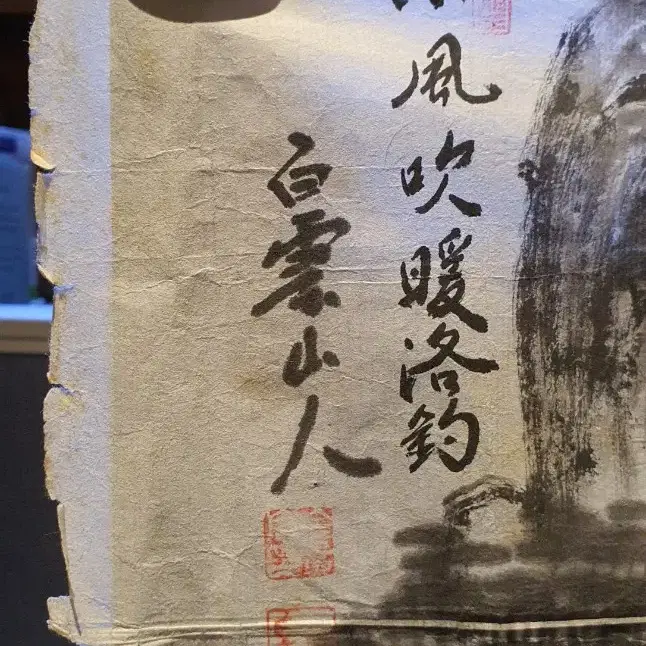 風吹暖洛釣
白雲山人